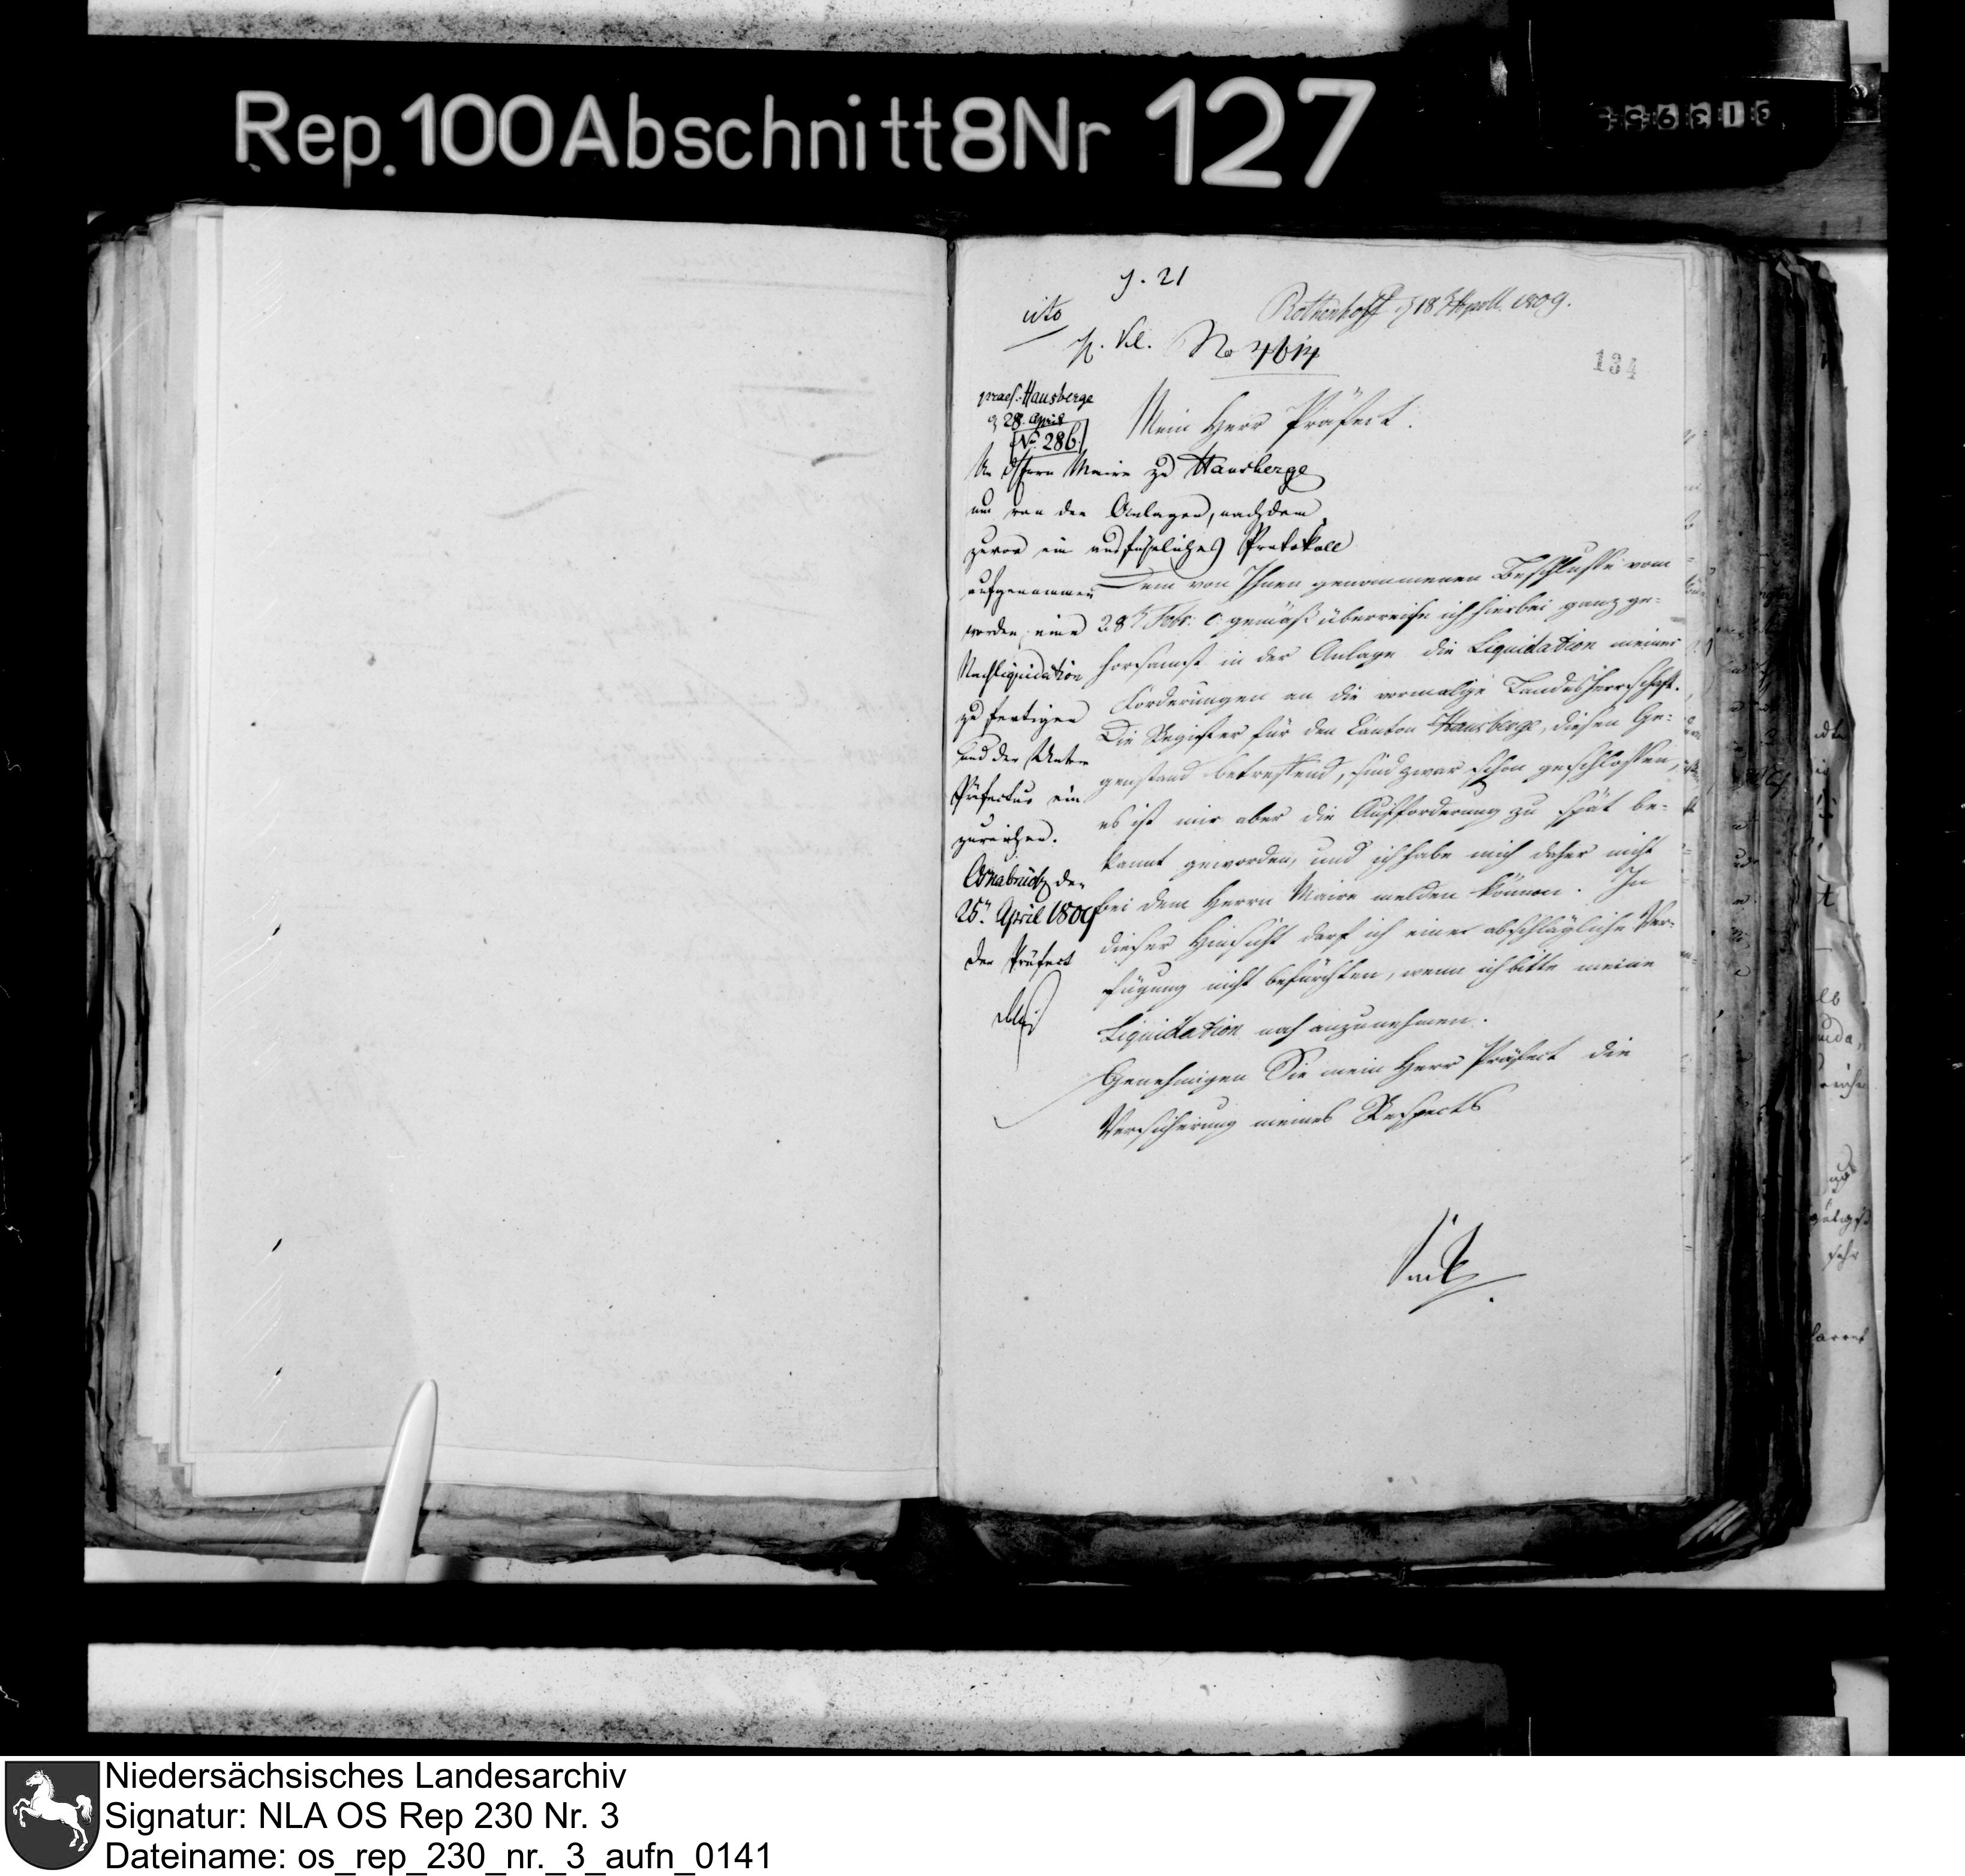 Rep. 100 Abschnitt 8 Nr 127
J. 21
cito
Rothenhoff d 18 April 1809.
No 4614
134
praes. Hausberge
d 28. April
No. 286.
Mein Herr Präfect.
An Herrn Maire zu Hausberge
um von den Anlagen, nachdem
zuvor ein ausführliches Protokoll
aufgenommen
worden, eine
Nachliquidation
zu fertigen
und der Unter
Präfectur ein
zureichen.
Osnabrück den
25n April 1809
Der Präfect
Dem von Ihnen genommenen Beschlusse vom
28n Febr: c. gemäß überreiche ich hierbei ganz ge-
horsamst in der Anlage die Liquidation meiner
Forderungen an die vormalige Landesherrschaft.
Die Register für den Canton Hausberge, diesen Ge-
genstand betreffend, sind zwar schon geschlossen,
es ist mir aber die Aufforderung zu spät be-
kannt geworden, und ich habe mich daher nicht
bei dem Herrn Maire melden können. In
dieser Hinsicht darf ich eine abschlägliche Ver-
fügung nicht befürchten, wenn ich bitte meine
Liquidation noch anzunehmen.
Genehmigen Sie mein Herr Präfect die
Versicherung meines Respects
Niedersächsisches Landesarchiv
Signatur: NLA OS Rep 230 Nr. 3
Dateiname: os_rep_230_nr._3_aufn_0141